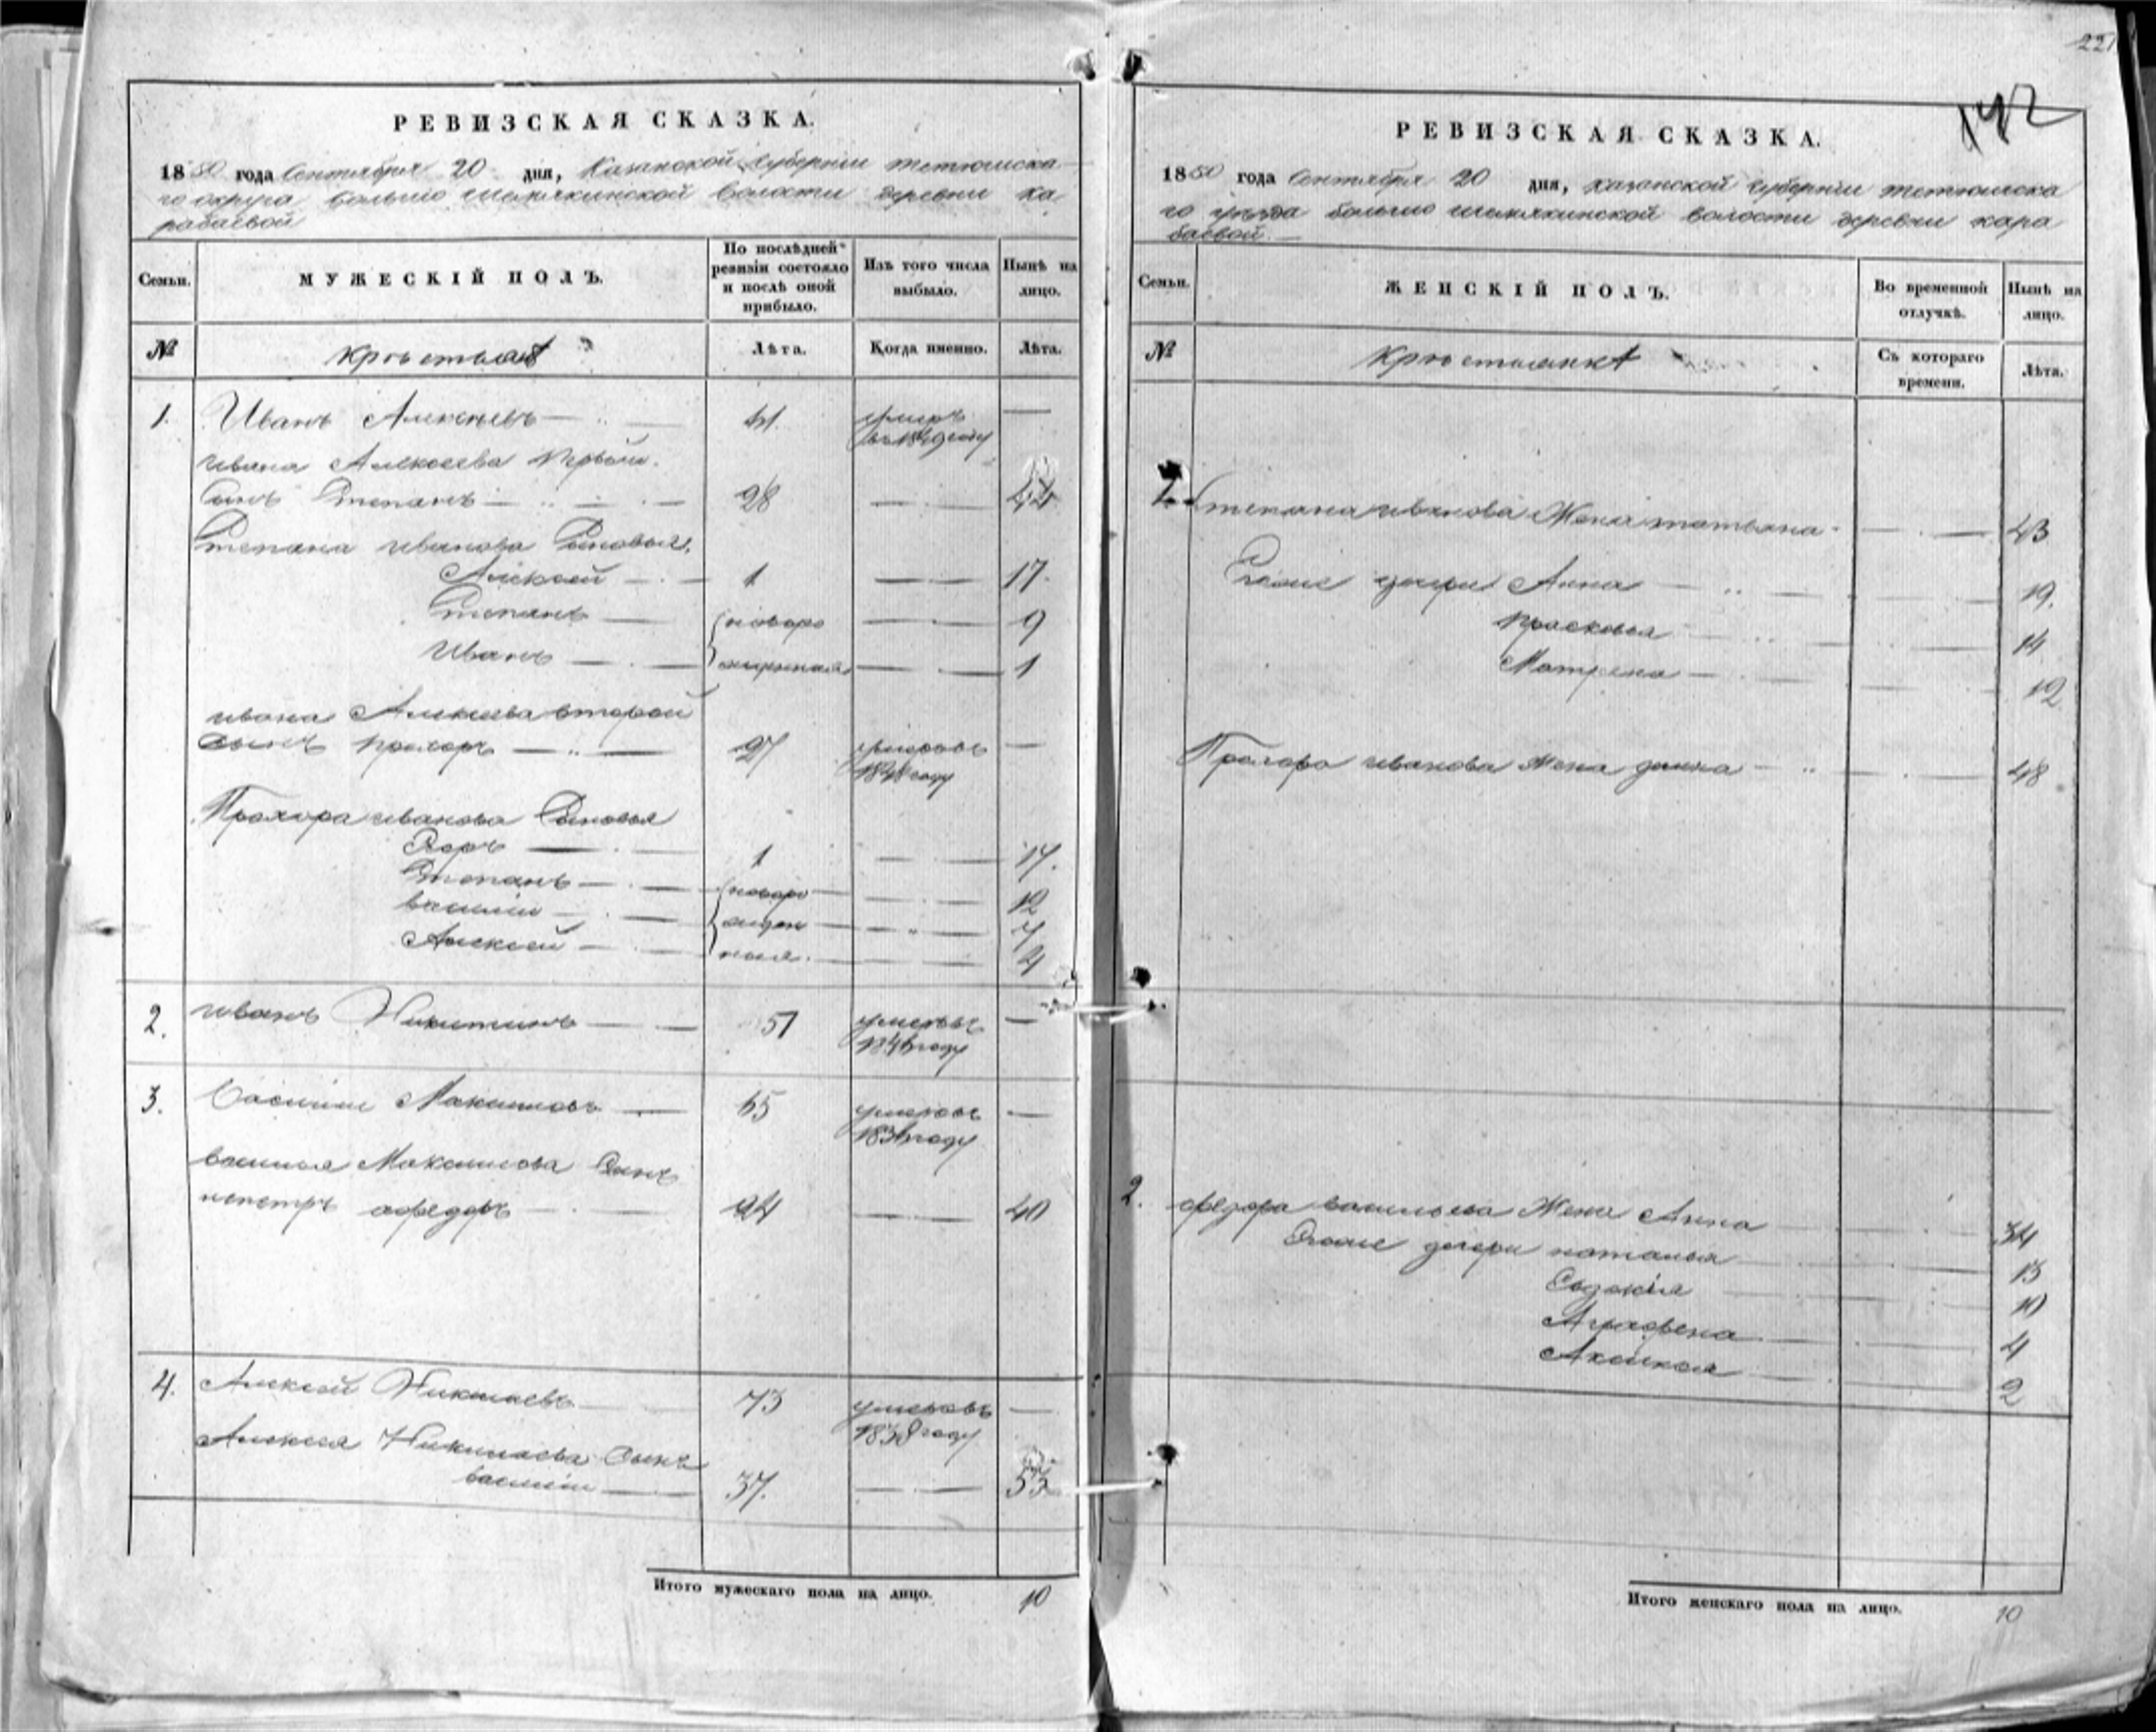 221
142
РЕВИЗСКАЯ СКАЗКА.
1850 года Сентября 20 дня, Казанской Губернии тетюшска
го округа большо шемякинской волости деревни ка
рабаевой
Семьи.
МУЖЕСКІЙ ПОЛЪ.
По послѣдней ревизіи состояло и послѣ оной прибыло.
Изъ того числа выбыло.
Нынѣ на лицо.
№
Крѣстьянъ
Лѣта.
Когда именно.
Лѣта.
1. Иванъ Алексѣевъ умеръ
Ивана Алексеева первой
Сынъ Степанъ 28 44
Степана иванова Сыновья
Алексей 1 17.
Степанъ новоро 9
Иванъ жденныя 1
ивана Алексеева второй
сынъ прохоръ 27 умеръ въ
году
Прохора иванова Сыновья
1 17.
Степанъ новоро 12
василии жден 7
Алексей ныя. 4
2. иванъ Никитинъ 51 умеръ въ
году
3. Василии Максимовъ 65 умеръ въ
году
василья Максимова Сынъ
федоръ 24 40
4. Алексей Николаевъ 73 умеръ въ
1838 году
Алексея Николаева Сынъ
василии 37. 53
Итого мужескаго пола на лицо. 10
РЕВИЗСКАЯ СКАЗКА.
1850 года Сентября 20 дня, казанской губернии тетюшска
го уѣзда большо шемякинской волости деревни кара
баевой.
Семьи.
ЖЕНСКІЙ ПОЛЪ.
Во временной отлучкѣ.
Нынѣ на лицо.
№
Крѣстьянкъ
Съ котораго времени.
Лѣта.
1. Степана иванова Жена татьяна 43
дочери Анна 19.
прасковья 14
Матрена 12
Прохора иванова Жена 48
2. федора васильева Жена Анна 34
дочери наталья 13
Евдокія 10
Аграфена 4
Аксинья 2
Итого женскаго пола на лицо. 10